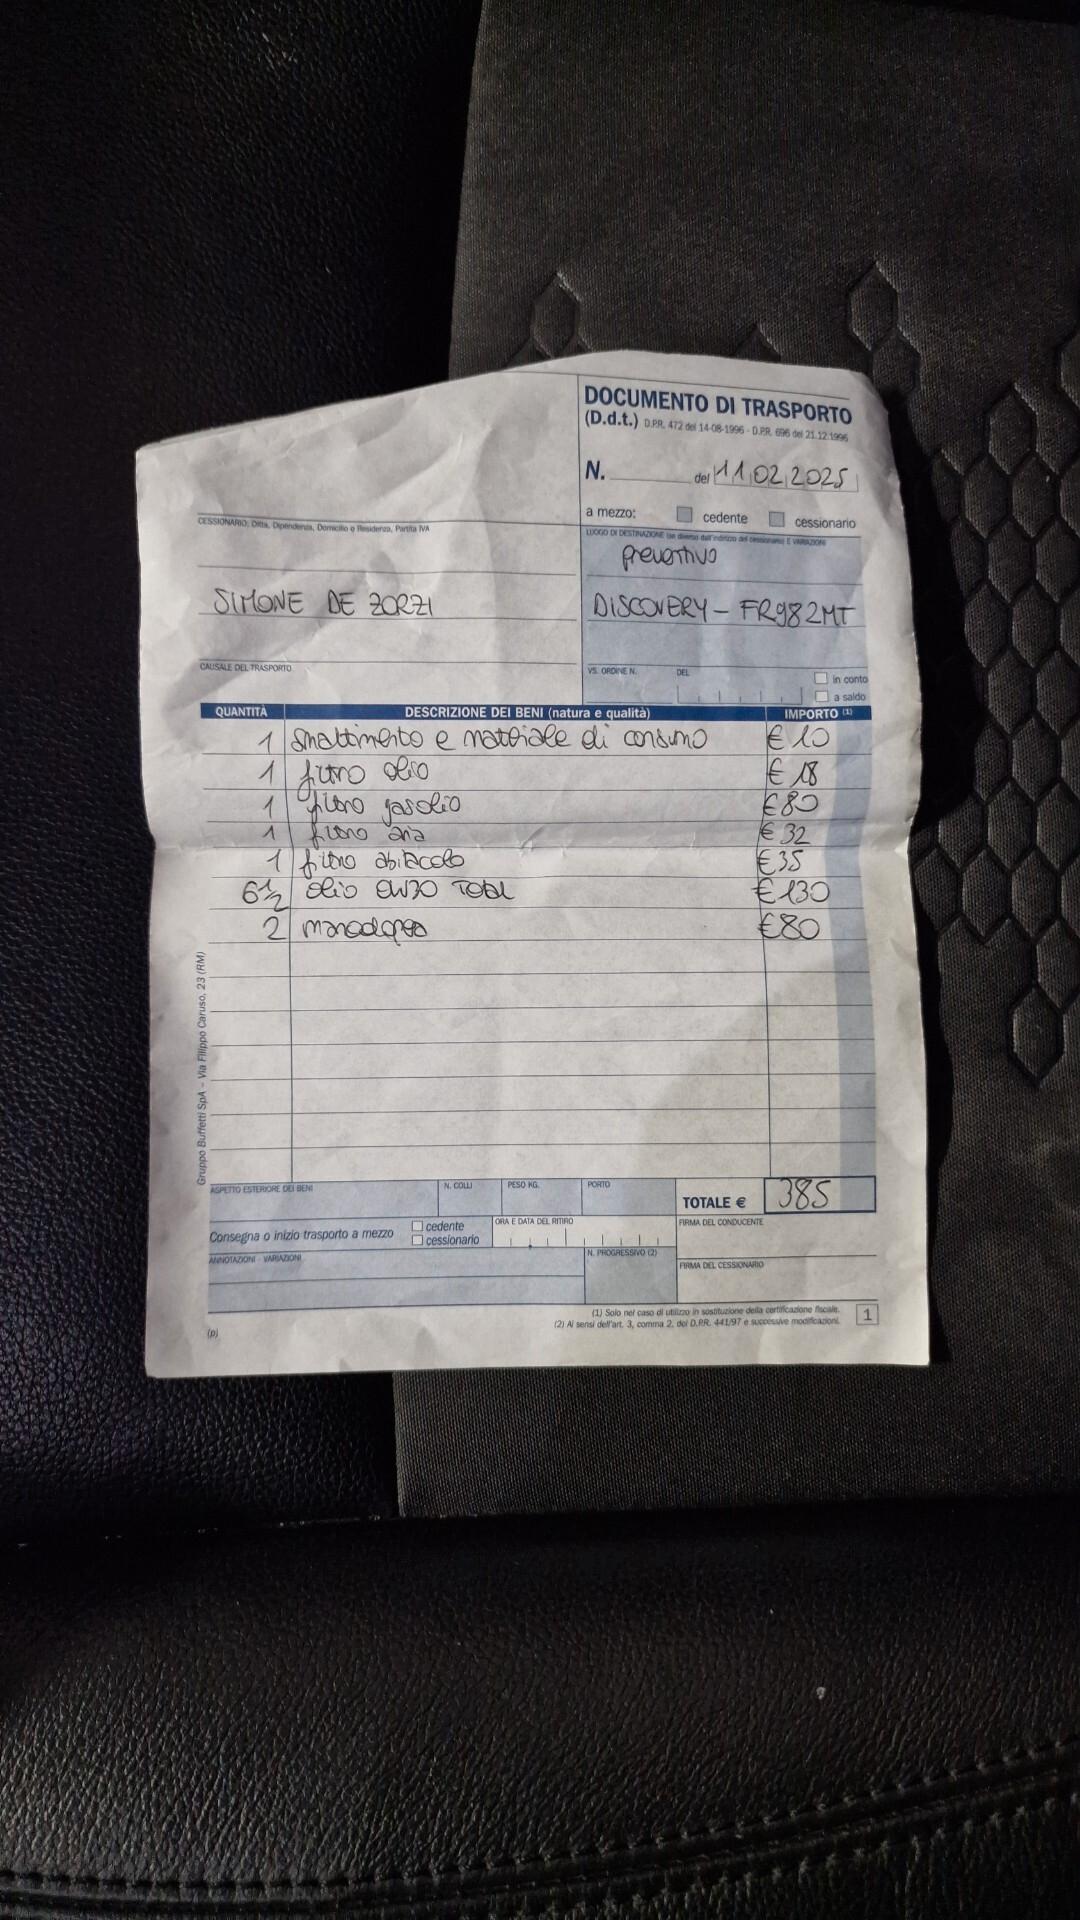 DOCUMENTO DI TRASPORTO
(D.d.t.) D.P.R. 472 del 14-08-1996 - D.P.R. 696 del 21.12.1996
N. del 11 02 2025
a mezzo: cedente cessionario
CESSIONARIO: Ditta, Dipendenza, Domicilio o Residenza, Partita IVA
LUOGO DI DESTINAZIONE (se diverso dall'indirizzo del cessionario) E VARIAZIONI
preventivo
SIMONE DE ZORZI
DISCOVERY - FR982MT
CAUSALE DEL TRASPORTO
VS. ORDINE N. DEL in conto
a saldo
QUANTITÀ DESCRIZIONE DEI BENI (natura e qualità) IMPORTO (1)
1 smaltimento e materiale di consumo € 10
1 filtro olio € 18
1 filtro gasolio € 80
1 filtro aria € 32
1 filtro abitacolo € 35
6 1/2 olio 0W30 TOTAL € 130
2 manodopera € 80
Gruppo Buffetti SpA - Via Filippo Caruso, 23 (RM)
ASPETTO ESTERIORE DEI BENI N. COLLI PESO KG. PORTO
TOTALE € 385
Consegna o inizio trasporto a mezzo cedente
cessionario
ORA E DATA DEL RITIRO
FIRMA DEL CONDUCENTE
ANNOTAZIONI - VARIAZIONI
N. PROGRESSIVO (2)
FIRMA DEL CESSIONARIO
(1) Solo nel caso di utilizzo in sostituzione della certificazione fiscale.
(2) Ai sensi dell'art. 3, comma 2, del D.P.R. 441/97 e successive modificazioni.
1
(p)